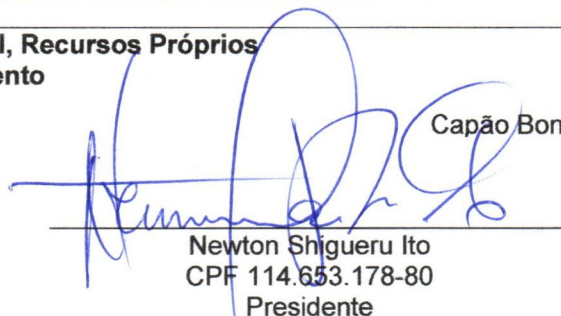 l, Recursos Próprios
ento
Capão Bon
Newton Shigueru Ito
CPF 114.653.178-80
Presidente